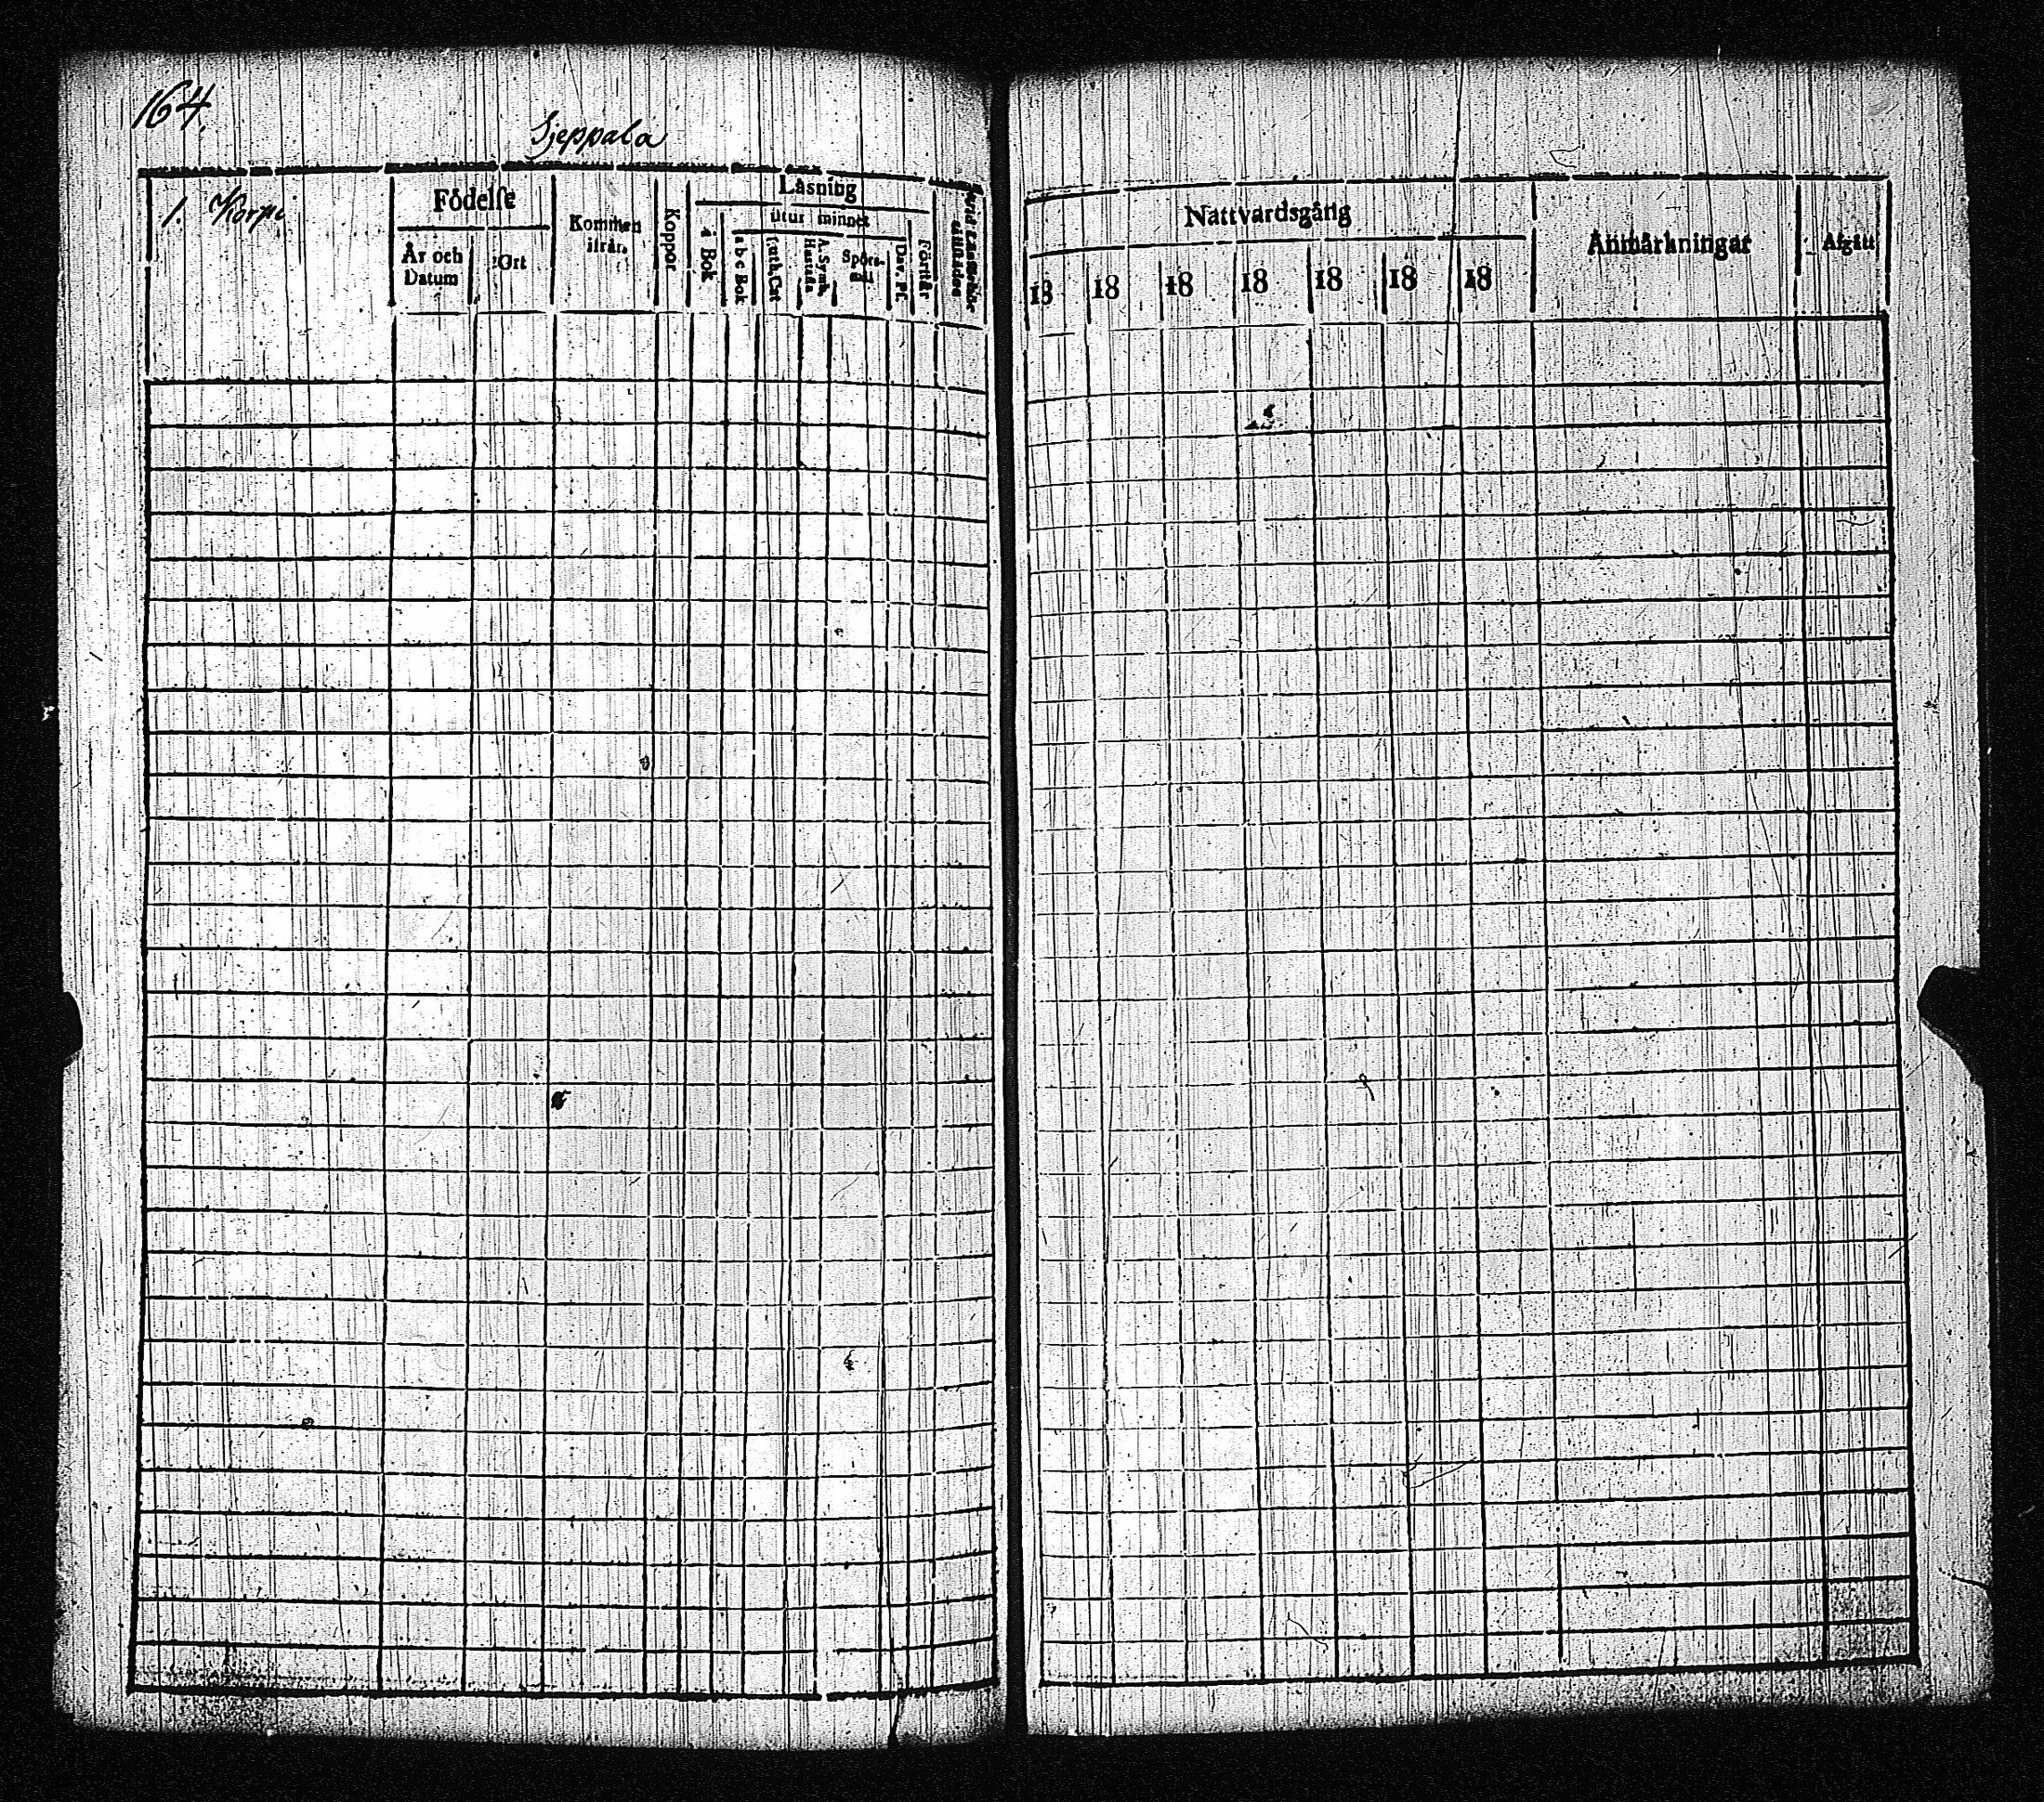 164.
Sjeppala
1. Korpi
Födelse
År och Datum
Ort
Kommen ifrån
Koppor
Läsning
utur minnet
i Bok
a b c Bok
Luth. Cat
A. Symb.
Hustafla
Spörs-mål
Dav. Ps.
Förstår
Nattvardsgång
18 18 18 18 18 18 18
Anmärkningar
Afgått